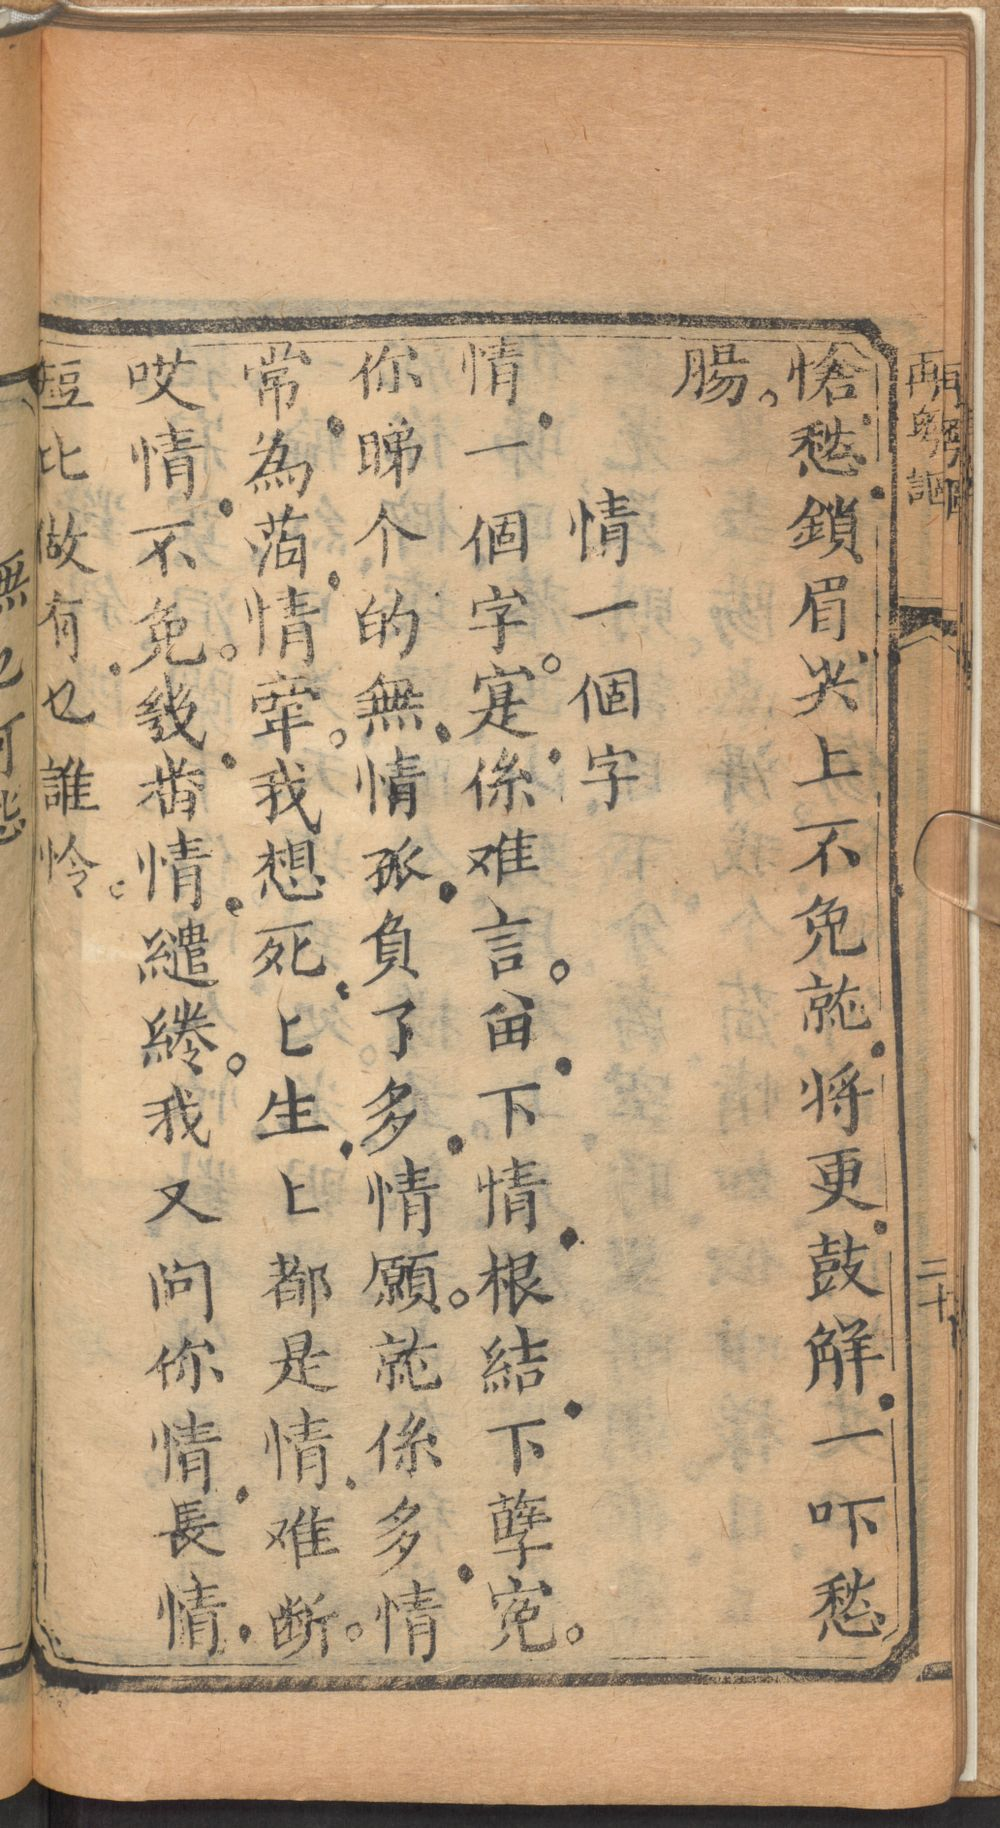 再粵謳
二十
愴愁鎖眉尖上不免就將更鼓解一吓愁
腸。
情一個字
情一個字。寔係难言。畄下情根結下孽寃。
你睇个的無情孤負了多情願。就係多情
常為薄情牽。我想死〻生〻都是情难断。
哎情不免。幾番情繾綣。我又问你情長情
短比做有乜誰怜。
無乜可